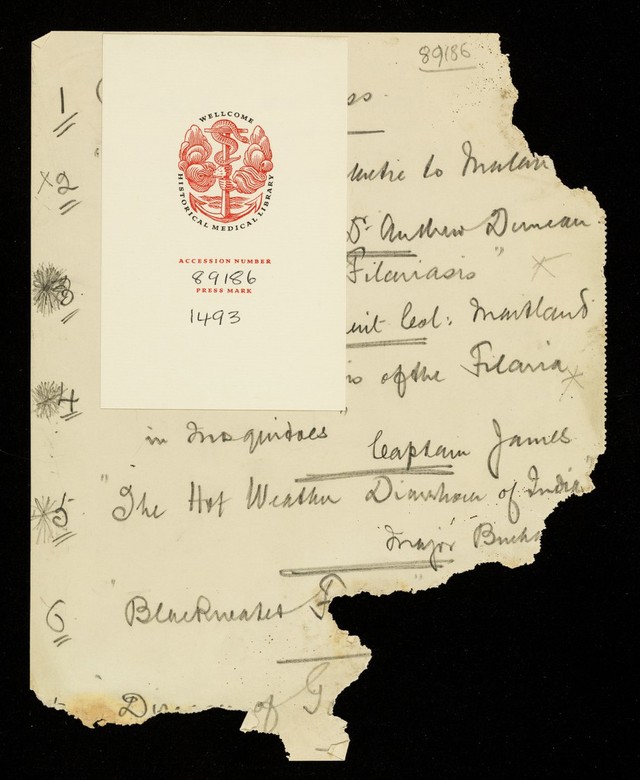 89186
WELLCOME
HISTORICAL MEDICAL LIBRARY
ACCESSION NUMBER
89186
PRESS MARK
1493
1
x2
to Malari
Dr Andrew Duncan
3
Filariasis" x
Col: Maitland
4
of the Filaria x
in Mosquitoes
Captain James
5 "The Hot Weather Diarrhoea of India"
Major Bucha
6 Blackwater F
of G